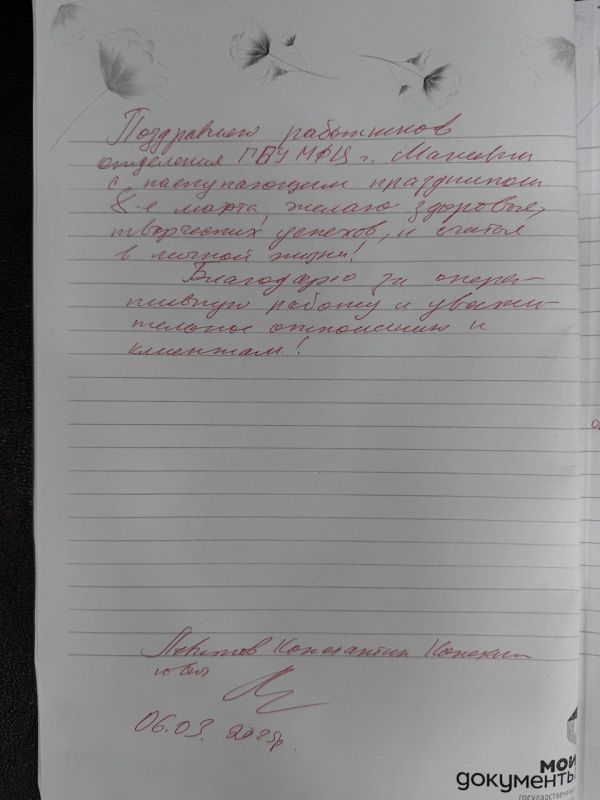 Поздравляю работников
отделения ГБУ МФЦ г. Макеевки
с наступающим праздником
8-е марта, желаю здоровья,
творческих успехов, и счастья
в личной жизни!
Благодарю за опера-
тивную работу и уважи-
тельное отношение к
клиентам!
Константин
06.03. 2025г.
МОИ
документы
государственн